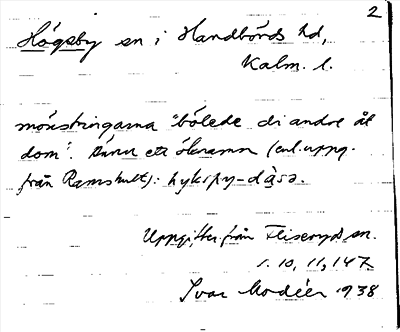 2
Högsby sn i Handbörds hd,
Kalm. l.
mönstringarna "bölede di andre åt
dom". Ännu ett öknamn (enl. uppg.
från Ramshult): hykspy-dåsa.
Uppgifter från Fliseryds sn.
1. 10, 11, 147
Ivar Modéer 1938